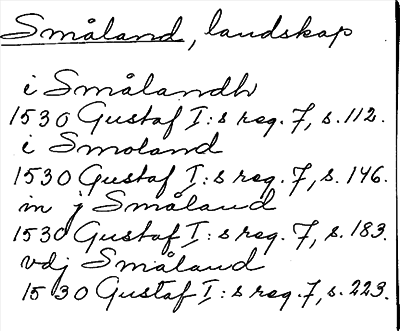 Småland, landskap
i Smålandh
1530 Gustaf I:s reg. 7, s. 112.
i Smoland
1530 Gustaf I:s reg. 7, s. 146.
in j Småland
1530 Gustaf I:s reg. 7, s. 183.
vdj Småland
1530 Gustaf I:s reg. 7, s. 223.